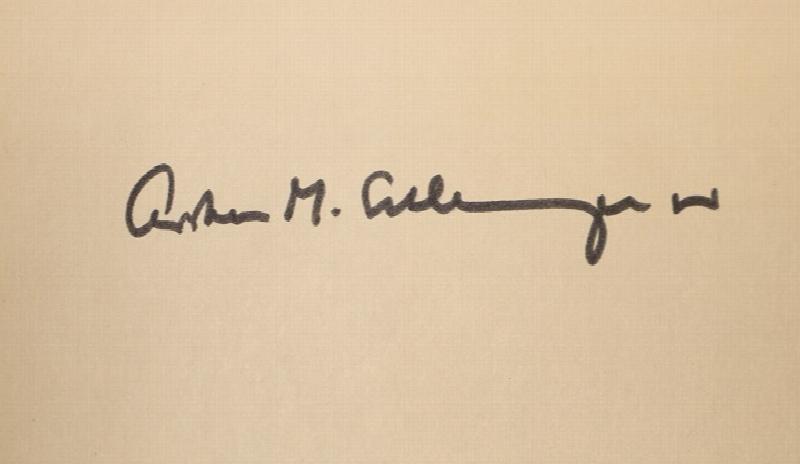 Arthur M. Schlesinger jr